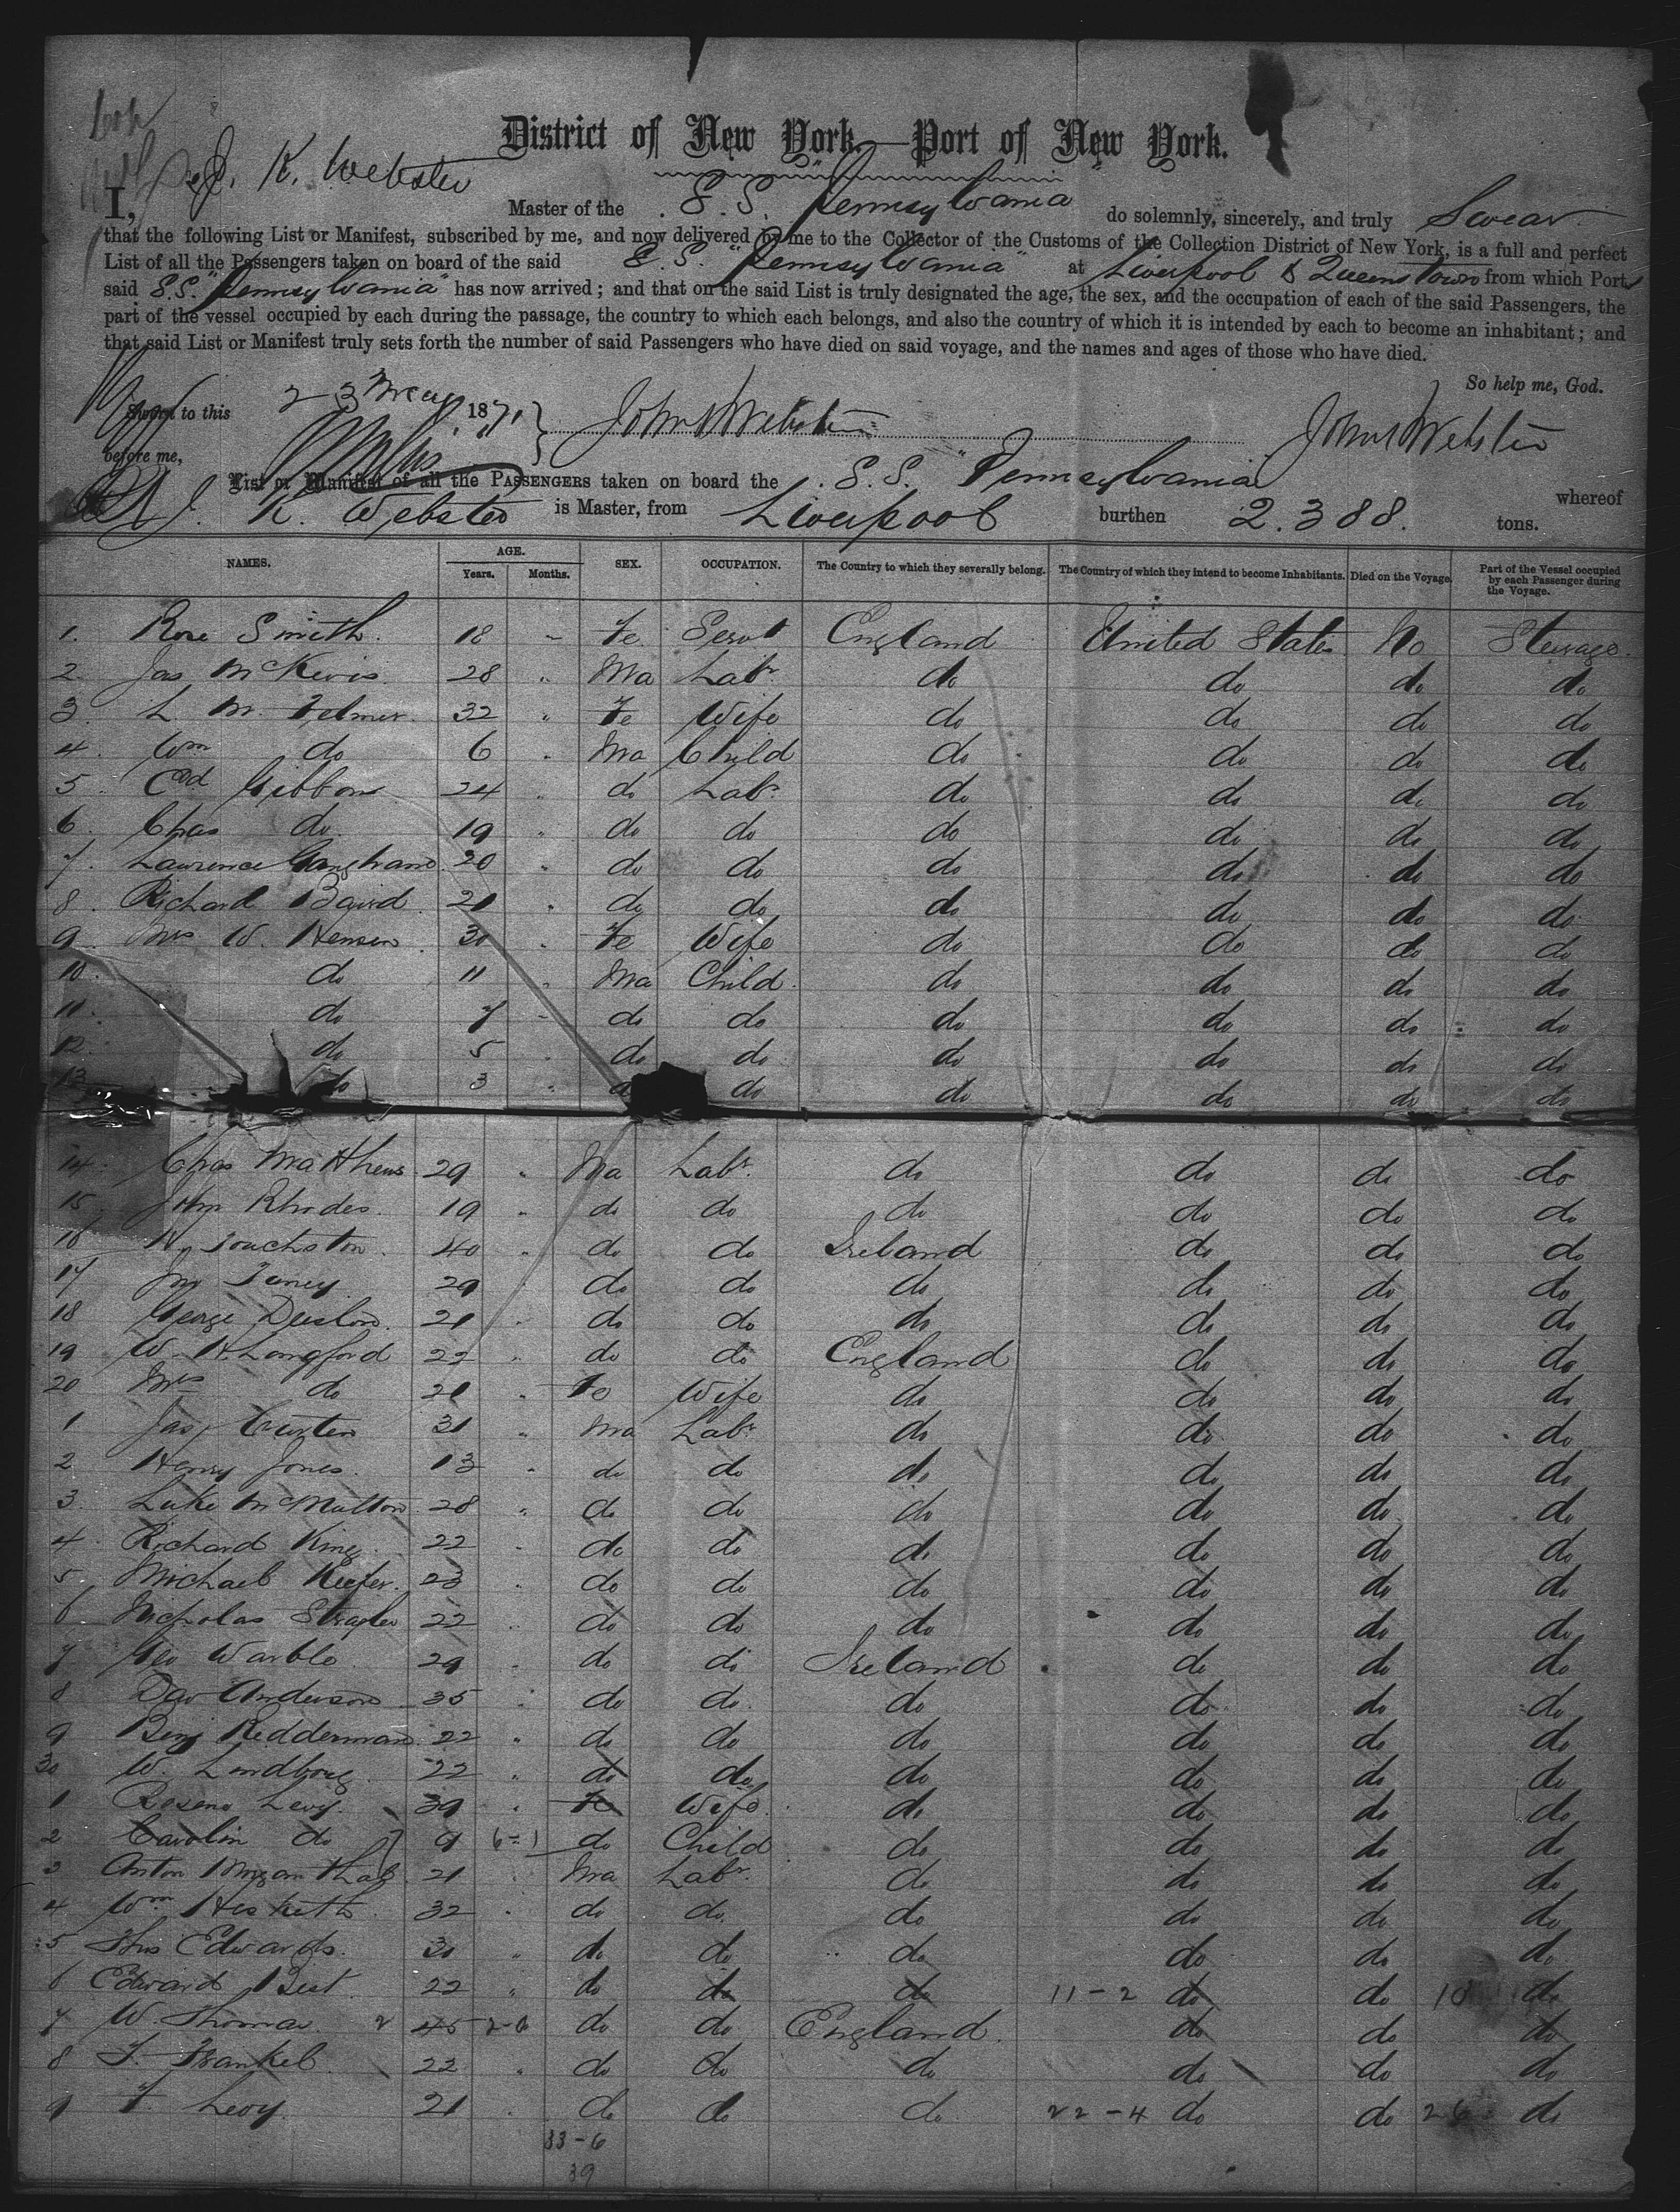 District of New York—Port of New York.
I, J. K. Webster Master of the S.S. Pennsylvania do solemnly, sincerely, and truly Swear
that the following List or Manifest, subscribed by me, and now delivered by me to the Collector of the Customs of the Collection District of New York, is a full and perfect
List of all the Passengers taken on board of the said S.S. "Pennsylvania" at Liverpool & Queenstown from which Ports
said S.S. "Pennsylvania" has now arrived; and that on the said List is truly designated the age, the sex, and the occupation of each of the said Passengers, the
part of the vessel occupied by each during the passage, the country to which each belongs, and also the country of which it is intended by each to become an inhabitant; and
that said List or Manifest truly sets forth the number of said Passengers who have died on said voyage, and the names and ages of those who have died.
So help me, God.
Sworn to this 23 May 1871 John Webster John Webster
before me,
List or Manifest of all the PASSENGERS taken on board the S.S. "Pennsylvania" whereof
J. K. Webster is Master, from Liverpool burthen 2.388. tons.
NAMES. AGE. Years. Months. SEX. OCCUPATION. The Country to which they severally belong. The Country of which they intend to become Inhabitants. Died on the Voyage. Part of the Vessel occupied by each Passenger during the Voyage.
1. Rose Smith 18 - Fe Servt England United States No Steerage
2. Jas McKevis 28 " Ma Labr do do do do
3. L M. Felmer 32 " Fe Wife do do do do
4. Wm do 6 " Ma Child do do do do
5. Edd Gibbons 24 " do Labr do do do do
6. Chas do 19 " do do do do do do
7. Lawrence 20 " do do do do do do
8. Richard Baird 21 " do do do do do do
9. Mrs W. Hensen 30 " Fe Wife do do do do
10. do 11 " Ma Child do do do do
11. do 7 " do do do do do do
12. do 5 " do do do do do do
13 do 3 " do do do do do
14. Chas Matthews 29 " Ma Labr do do do do
15. John Rhodes 19 " do do do do do do
16 Hy Touchston 40 " do do Ireland do do do
17 Jno 29 " do do do do do do
18 George 21 " do do do do do do
19 W. H. Longford 22 " do do England do do do
20 Mrs do 21 " Fe Wife do do do do
1 Jas 31 " Ma Labr do do do do
2 Henry Jones 13 " do do do do do do
3. Luke 28 " do do do do do do
4. Richard King 22 " do do do do do do
5 Michael Keefer 23 " do do do do do do
6 Nicholas 22 " do do do do do do
7 Geo Warble 29 " do do Ireland do do do
8 Dav Anderson 35 " do do do do do do
9 Benj Redderman 22 " do do do do do do
30 W. Lindbourg 22 " do do do do do do
1 Levy 39 " Fe Wife do do do do
2 Carolin do 9 6=1 do Child do do do do
3 Anton 21 " Ma Labr do do do do
4 Wm Hesketh 32 " do do do do do do
5 Thos Edwards 30 " do do do do do do
6 Edward Best 22 " do do do 11-2 do do 10 do
7 W. Thomas 45 do do England do do do
8 F. Frankel 22 " do do do do do do
9 F. Levy 21 " do do do 22-4 do do 26 do
33-6
39